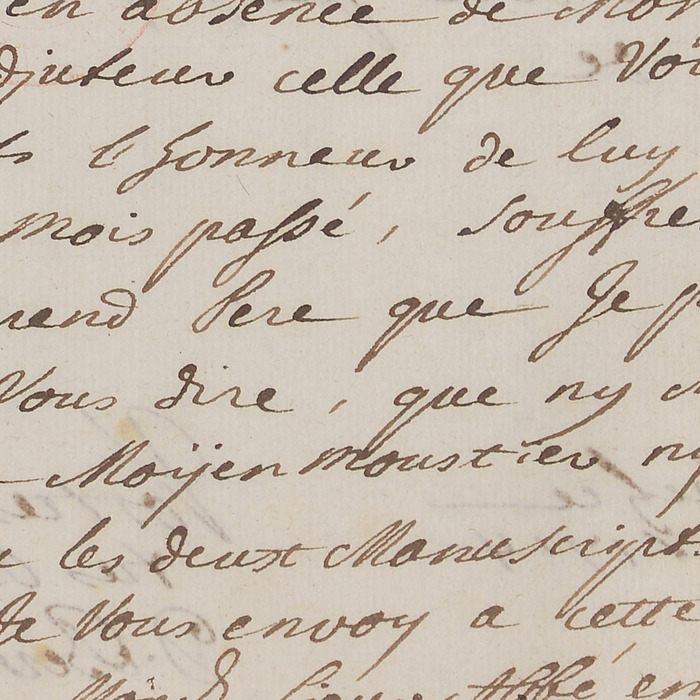 en absence de Mon
djuteur celle que Vou
ts l'honneur de luy
mois passé, souffre
rend Pere que Je p
Vous dire, que ny
Moÿenmoustier ny
les deux Manuscripts
Je Vous envoy a cette
Abbé en